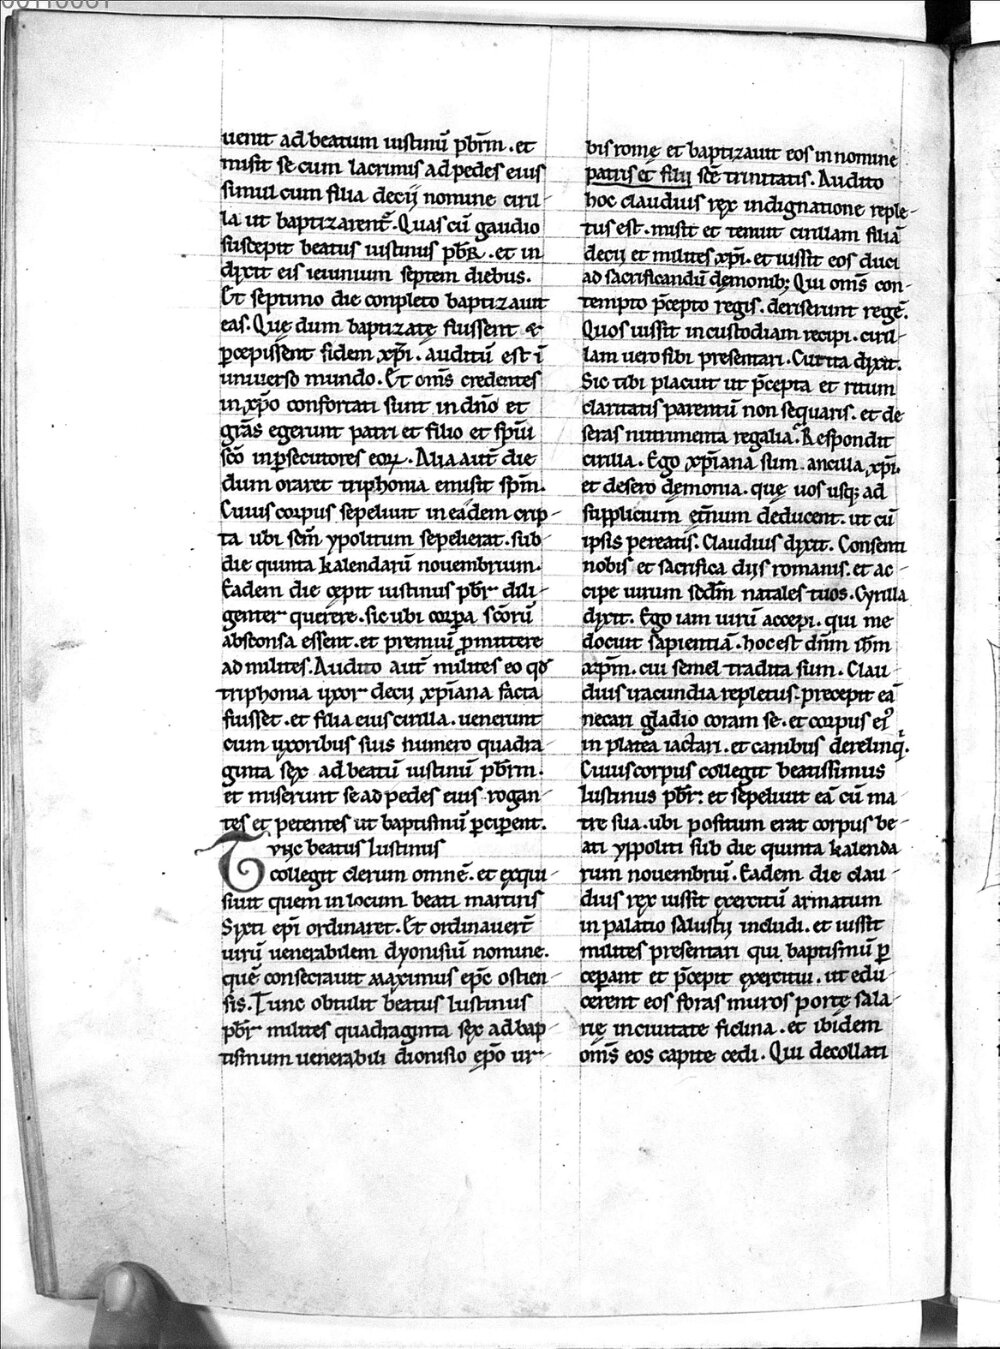 uenit ad beatum iustinū pbr̄m . et
misit se cum lacrimis ad pedes eius
simul cum filia decij nomine ciril-
la ut baptizarent̄. Quas cū gaudio
suscepit beatus iustinus pbr̄ . et in
dixit eis ieiunium septem diebus.
Et septimo die conpleto baptizauit
eas. Quę dum baptizatę fuissent &
p̱cepissent fidem xp̄i . auditū est ī
uniuerso mundo. Et om̄s credentes
in xp̄o confortati sunt in dn̄o et
gr̄as egerunt patri et filio et sp̄ui
sc̄o in p̱secutores eoꝝ. Alia aut̄ die
dum oraret triphonia emisit sp̄m.
Cuius corpus sepeliuit in eadem crip-
ta ubi sc̄m ypolitum sepelierat. sub
die quinta kalendarū nouembrium.
Eadem die cępit iustinus pbr̄ dili-
genter querere. sic ubi corpa sc̄orū
absconsa essent. et premiū p̱mittere
ad milites. Audito aut̄ milites eo qđ
triphonia uxor decij xp̄iana facta
fuisset. et filia eius cirilla. uenerunt
cum uxoribus suis numero quadra-
ginta sex ad beatū iustinū pbr̄m.
et miserunt se ad pedes eius rogan-
tes et petentes ut baptismū p̱ciperent.
Tunc beatus Iustinus
collegit clerum omnē. et exqui-
siuit quem in locum beati martiris
Syxti epi̅ ordinaret. Et ordinauer̄t
uirū uenerabilem dyonisiū nomine.
quē consecrauit maximus epc̄ ostien-
sis. Tunc obtulit beatus Iustinus
pbr̄ milites quadraginta sex ad bap-
tismum uenerabili dionisio ep̄o ur-
bis romę et baptizauit eos in nomine
patris et filij scē trinitatis. Audito
hoc claudius rex indignatione reple-
tus est. misit et tenuit cirillam filiā
decij et milites xp̄i. et iussit eos duci
ad sacrificandū demonib; Qui om̄s con-
tempto p̄cepto regis. deriserunt regē.
Quos iussit in custodiam recipi. ciril-
lam uero sibi presentari. Cui ita dixit.
Sic tibi placuit ut p̄cepta et ritum
claritatis parentū non sequaris. et de
seras nutrimenta regalia. Respondit
cirilla. Ego xp̄iana sum. ancilla xp̄i.
et desero dęmonia. quę uos usq; ad
supplicium et̄num deducent. ut cū
ipsis pereatis. Claudius dixit. Consenti
nobis et sacrifica dijs romanis. et ac-
cipe uirum scđm natales tuos. Cyrilla
dixit. Ego iam uirū accepi. qui me
docuit sapientiā. hoc est dn̄m ihm̄
xp̄m. cui semel tradita sum. Clau-
dius iracundia repletus. precepit eā
necari gladio coram se. et corpus ei9
in platea iactari. et canibus derelinq̄.
Cuius corpus collegit beatissimus
Iustinus pbr̄: et sepeliuit eā cū ma-
tre sua. ubi positum erat corpus be-
ati yppoliti sub die quinta kalenda
rum nouembriū. Eadem die clau-
dius rex iussit exercitū armatum
in palatio salustij includi. et iussit
milites presentari qui baptismū p̱
ceperant et p̄cepit exercitui. ut edu-
cerent eos foras muros portę sala-
rię in ciuitate fielina. et ibidem
om̄s eos capite cedi. Qui decollati